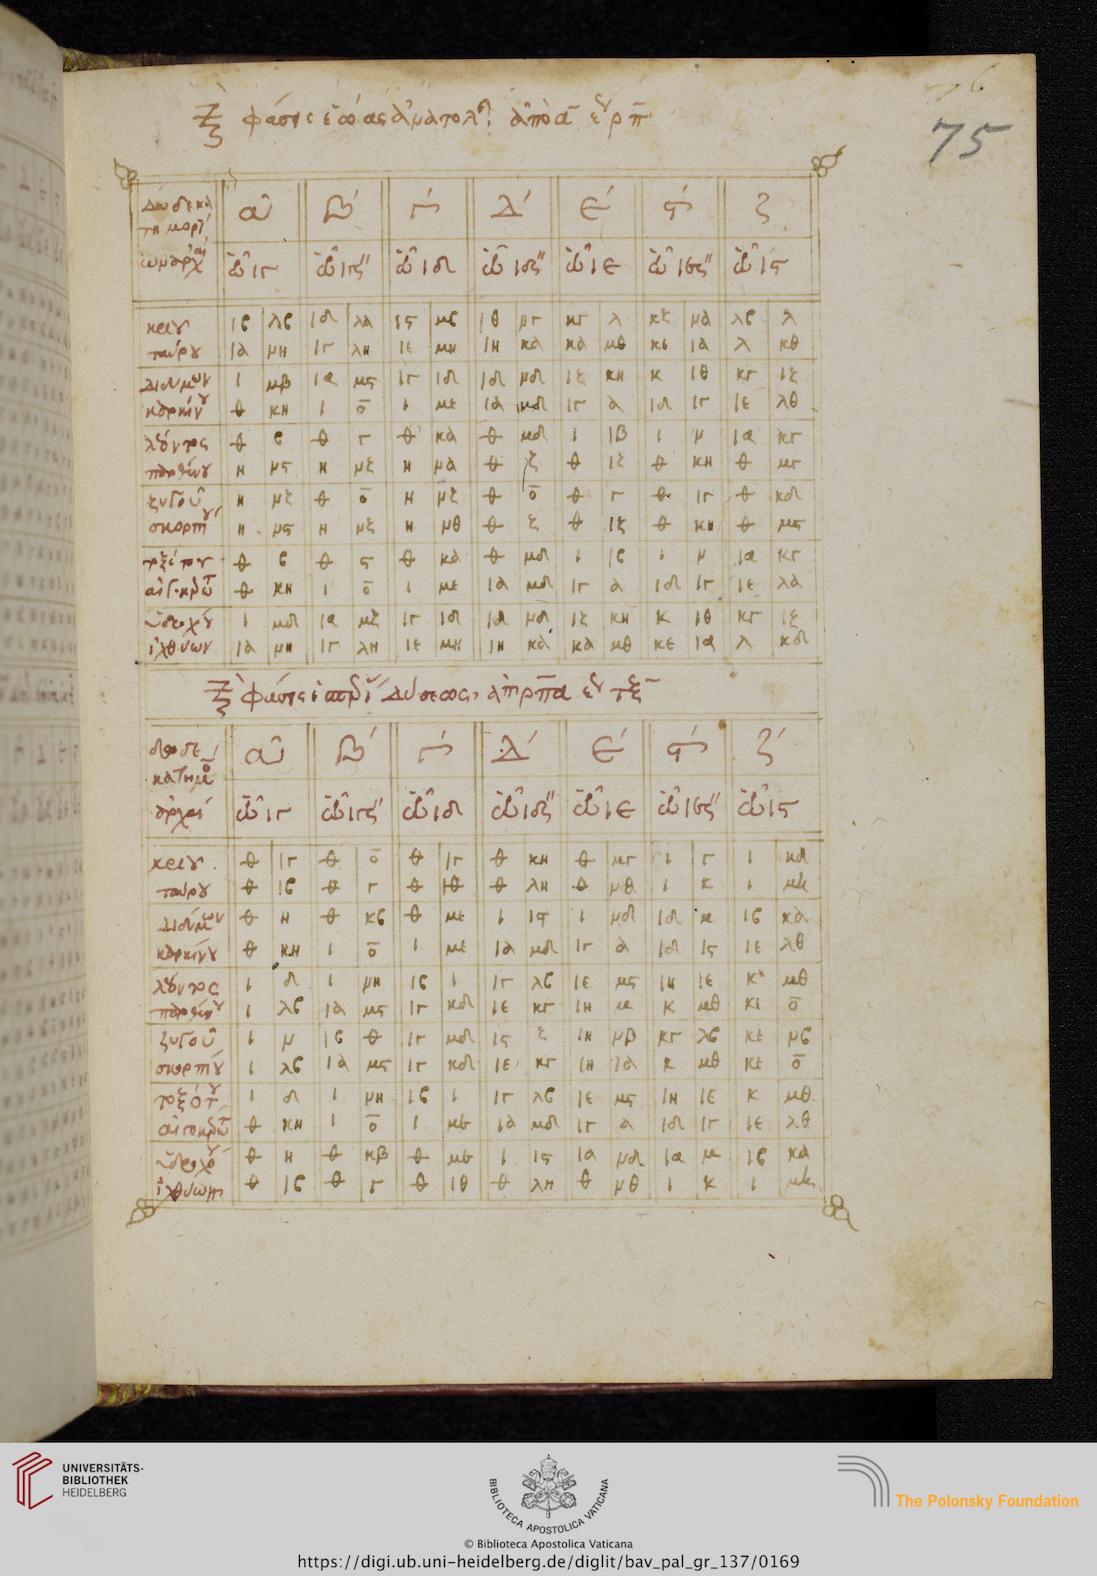 76
75
φάσεις ἑῴας ἀνατολ ἀπὸ α ρπ
δωδεκα α β γ δ ε ϛ ζ
τημορί
ιγ ιγ ιδ ιδ ιε ιε ιϛ
κριου ιϛ λϛ ιδ λα ιϛ μϛ ιθ μγ κγ λ κξ μα λϛ λ
ταύρου ια μη ιγ λη ιε μη ιη κα κα μθ κε ια λ κθ
διδυμων ι μβ ια μϛ ιγ ιδ ιδ μδ ιζ κη κ ιθ κγ ιζ
καρκίνου θ κη ι ο ι με ια μδ ιγ α ιδ ιγ ιε λθ
λέοντος θ ϛ θ γ θ κα θ μδ ι ιβ ι μ ια κγ
παρθένου η μϛ η μζ η μα θ ζ θ ιζ θ κη θ μγ
ζυγοῦ η μζ θ ο η μζ θ ο θ γ θ ιγ θ κδ
σκορπίου η μϛ η μζ η μθ θ ζ θ ιζ θ κη θ μϛ
τοξότου θ ϛ θ ϛ θ κα θ μδ ι ιϛ ι μ ια κγ
αἰγοκρω θ κη ι ο ι με ια μδ ιγ α ιδ ιγ ιε λα
ὑδροχόου ι μδ ια μζ ιγ ιδ ιδ μδ ιζ κη κ ιθ κγ ιζ
ἰχθύων ια μη ιγ λη ιε μη ιη κα κα μθ κε ια λ κδ
φάσεις δύσεως ἀπὸ ρπα τξ
δωδε α β γ δ ε ϛ ζ
κατημο
ἀρχαί ιγ ιγ ιδ ιδ ιε ιε ιϛ
κριου θ ιγ θ ο θ ιγ θ κη θ μγ ι γ ι κδ
ταύρου θ ιϛ θ γ θ ιθ θ λη θ μθ ι κ ι
διδύμων θ η θ κϛ θ με ι ιϛ ι μδ ιδ ιϛ κα
καρκίνου θ κη ι ο ι με ια μδ ιγ α ιδ ιϛ ιε λθ
λέοντος ι δ ι μη ιϛ ι ιγ λϛ ιε μϛ ιη ιε κ μθ
παρθένου ι λϛ ια μϛ ιγ κδ ιε κγ ιη κ μθ κε ο
ζυγοῦ ι μ ιϛ θ ιγ μδ ιϛ ζ ιη μβ κγ λϛ κε μϛ
σκορπίου ι λϛ ια μϛ ιγ κδ ιε κγ ιη ια κ μθ κε ο
τοξότ ι δ ι μη ιϛ ι ιγ λϛ ιε μϛ ιη ιε κ μθ
αἰγοκρω θ κη ι ο ι με ια μδ ιγ α ιδ ιγ ιε λθ
ὑδροχό θ η θ κβ θ με ι ιϛ ια μδ ια ιϛ κα
ἰχθύων θ ιϛ θ γ θ ιθ θ λη θ μθ ι κ ι
UNIVERSITÄTS-
BIBLIOTHEK
HEIDELBERG
BIBLIOTECA APOSTOLICA VATICANA
The Polonsky Foundation
© Biblioteca Apostolica Vaticana
https://digi.ub.uni-heidelberg.de/diglit/bav_pal_gr_137/0169